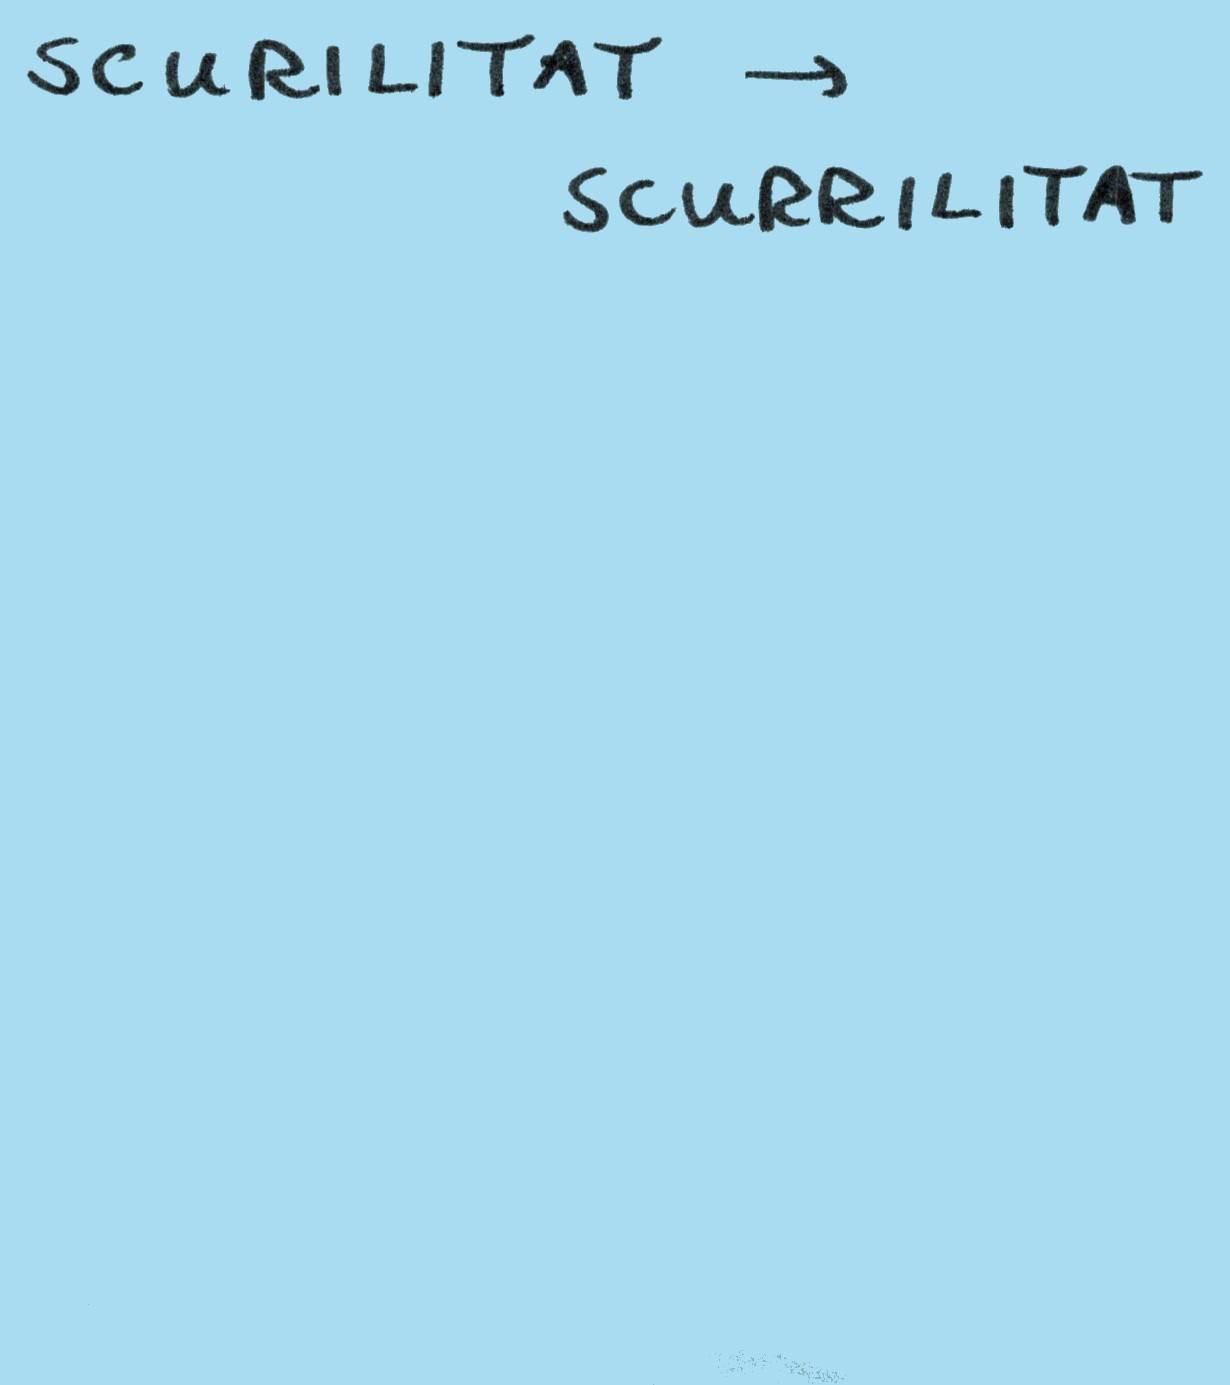 SCURILITAT →
SCURRILITAT